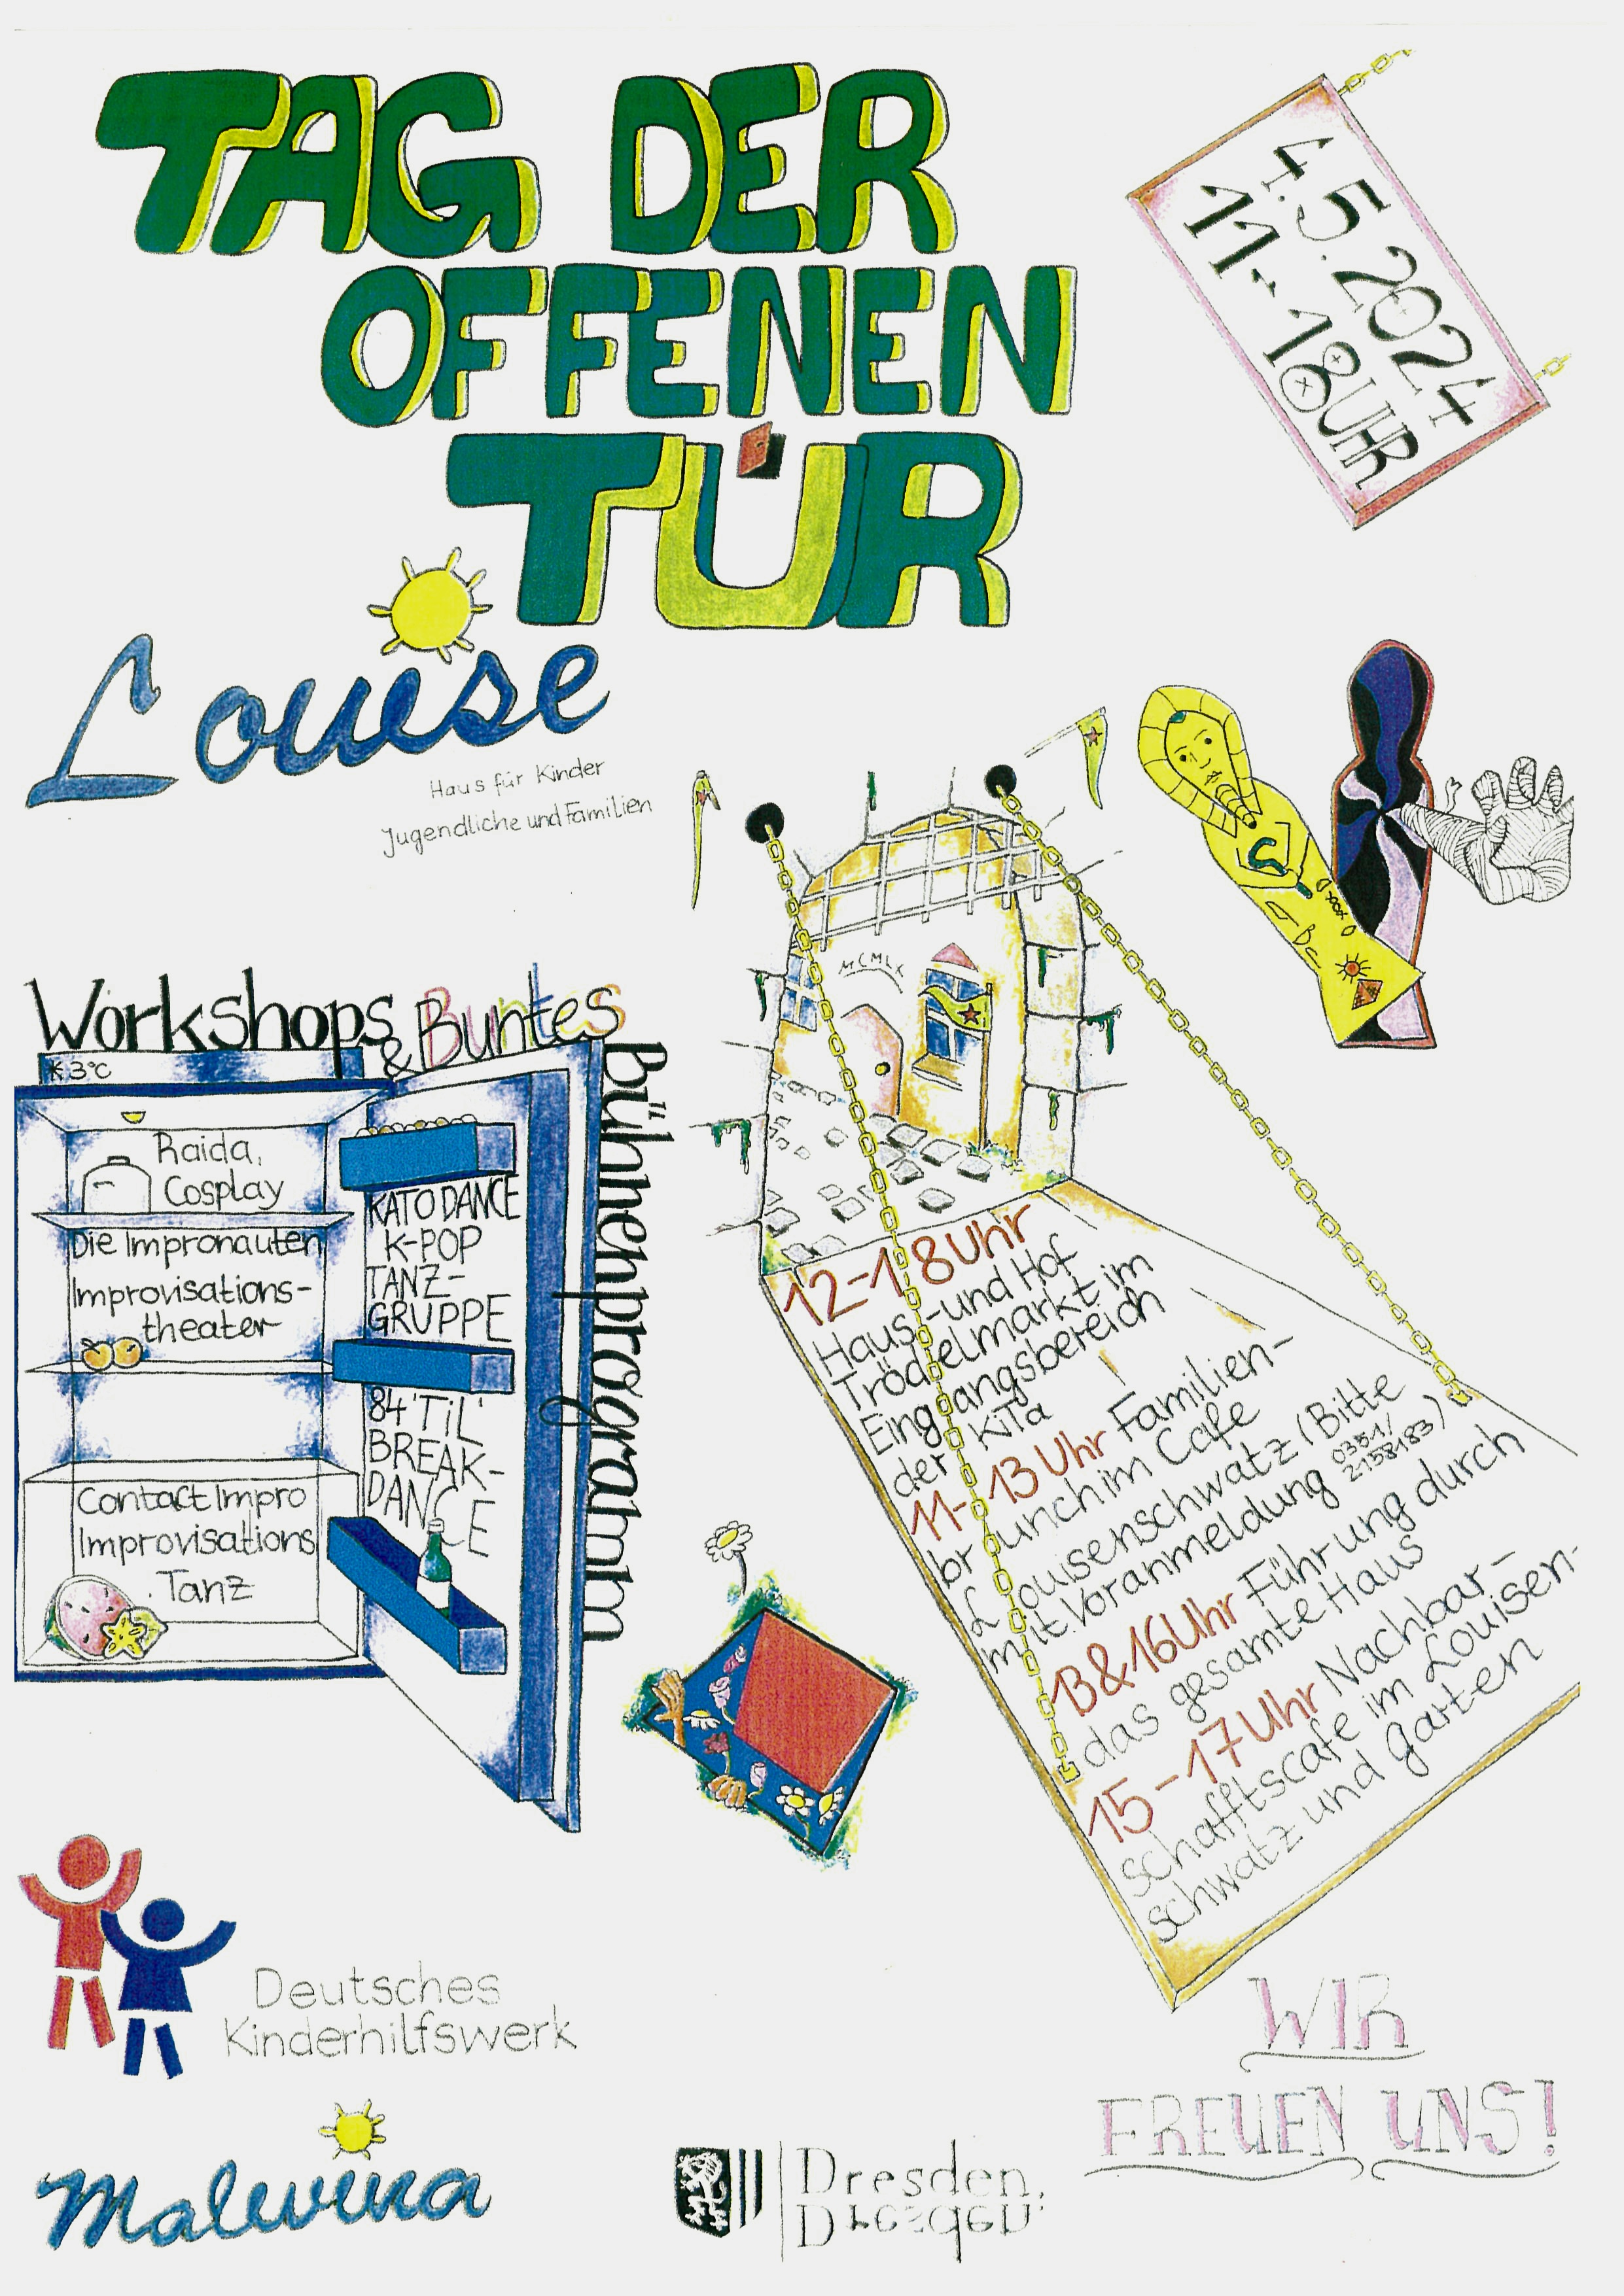 TAG DER
OFFENEN
TÜR
4.5.2024
11-18UHR
Louise
Haus für Kinder
Jugendliche und Familien
Workshops
& Buntes
Bühnenprogramm
* 3°C
Raida,
Cosplay
Die Impronauten
Improvisations-
theater
Contact Impro
Improvisations
Tanz
KATO DANCE
K-POP
TANZ-
GRUPPE
84'TiL'
BREAK-
DANCE
MCMLX
12-18Uhr
Haus-und Hof
Trödelmarkt im
Eingangsbereich
der KiTa
11-13Uhr Familien-
brunch im Cafe
Louisenschwatz (Bitte
mit Voranmeldung 0351/
2158183)
13&16Uhr Führung durch
das gesamte Haus
15-17Uhr Nachbar-
schafftscafe im Louisen-
schwatz und garten
Deutsches
Kinderhilfswerk
Malwina
Dresden.
Dresden.
WIR
FREUEN UNS!